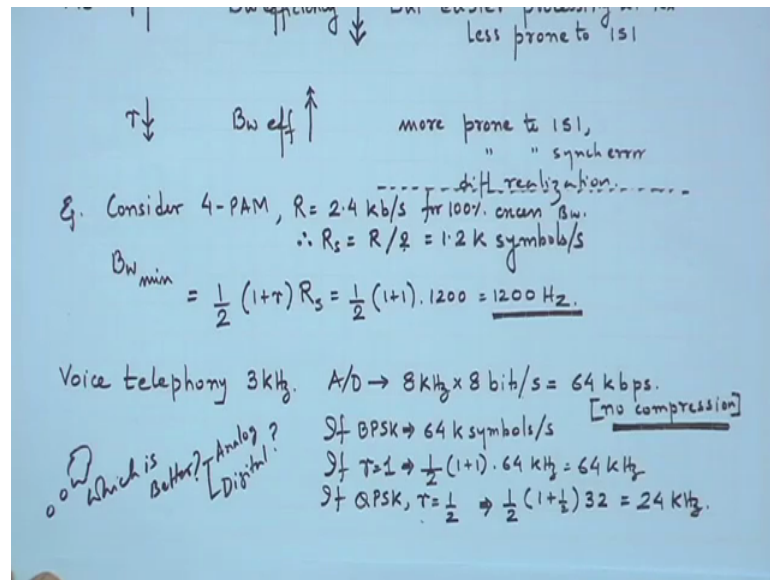 Bw efficiency ↓ But easier processing at
Less prone to ISI
r↓ Bw eff ↑ more prone to ISI,
" " synch error
diff. realization.
Eg. Consider 4-PAM, R = 2.4 kb/s for 100% excess Bw.
∴ Rs = R/2 = 1.2 K symbols/s
Bw min = 1/2 (1+r) Rs = 1/2 (1+1). 1200 = 1200 Hz.
Voice telephony 3 kHz. A/D → 8 kHz x 8 bit/s = 64 kbps.
[no compression]
If BPSK ⇒ 64 k symbols/s
If r=1 ⇒ 1/2 (1+1). 64 kHz = 64 kHz
If QPSK, r = 1/2 ⇒ 1/2 (1+1/2) 32 = 24 kHz.
Which is Better? Analog ?
Digital